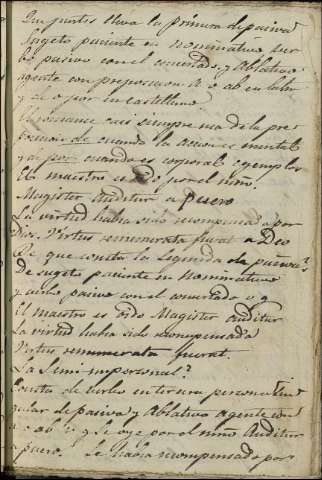 Que partes lleva la primera de pasiva
Sugeto paciente en Nominativo ver
bo pasivo con el concertado, y Ablativo
agente con preposicion A o ab en latin
y de o por en castellano
El romance casi siempre usa de la pre
posicion de cuando la accion es mental
y de por cuando es corporal: exemplo
El maestro es oido por el niño.
Magister Auditur a puero
La virtud habia sido recompensada por
Dios. Virtus remunerata fuerat a Deo
De que consta la segunda de pasiva?
De sugeto paciente en Nominativo
y verbo pasivo con el concertado v g
El maestro es oido Magister auditur
La virtud habia sido recompensada
Virtus remunerata fuerat.
La semi impersonal?
Consta de verbo en tercera persona sin
gular de pasiva y Ablativo agente con
a o ab v g Se oye por el niño Auditur
a puero. Se habia recompensado por